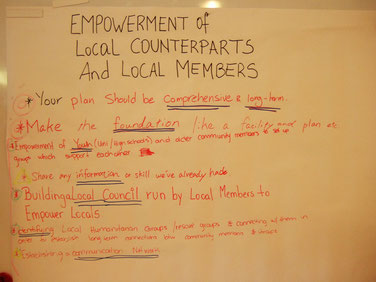 EMPOWERMENT of
Local COUNTERPARTS
And Local MEMBERS
* Your plan Should be comprehensive & long-term.
* Make the foundation like a facility and plan as
* Empowerment of Youth (Uni/high schools) and older community members to set up
groups which support each other
* Share any information or skill we've already had
* Building a Local Council run by Local Members to
Empower Locals
* identifying Local Humanitarian Groups / groups & connecting all them in
order to establish long-term connections btw community members & Groups
* Establishing a communication Network